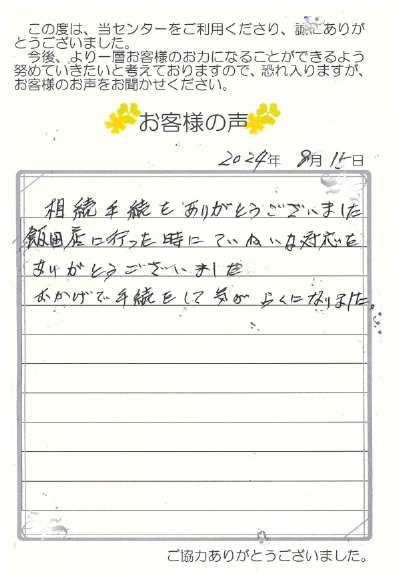 この度は、当センターをご利用くださり、誠にありが
とうございました。
今後、より一層お客様のお力になることができるよう
努めていきたいと考えておりますので、恐れ入りますが、
お客様のお声をお聞かせください。
お客様の声
2024年 8月 15日
相続手続をありがとうございました
飯田店に行った時にていねいな対応を
ありがとうございました
おかげで手続をして気がらくになりました。
ご協力ありがとうございました。